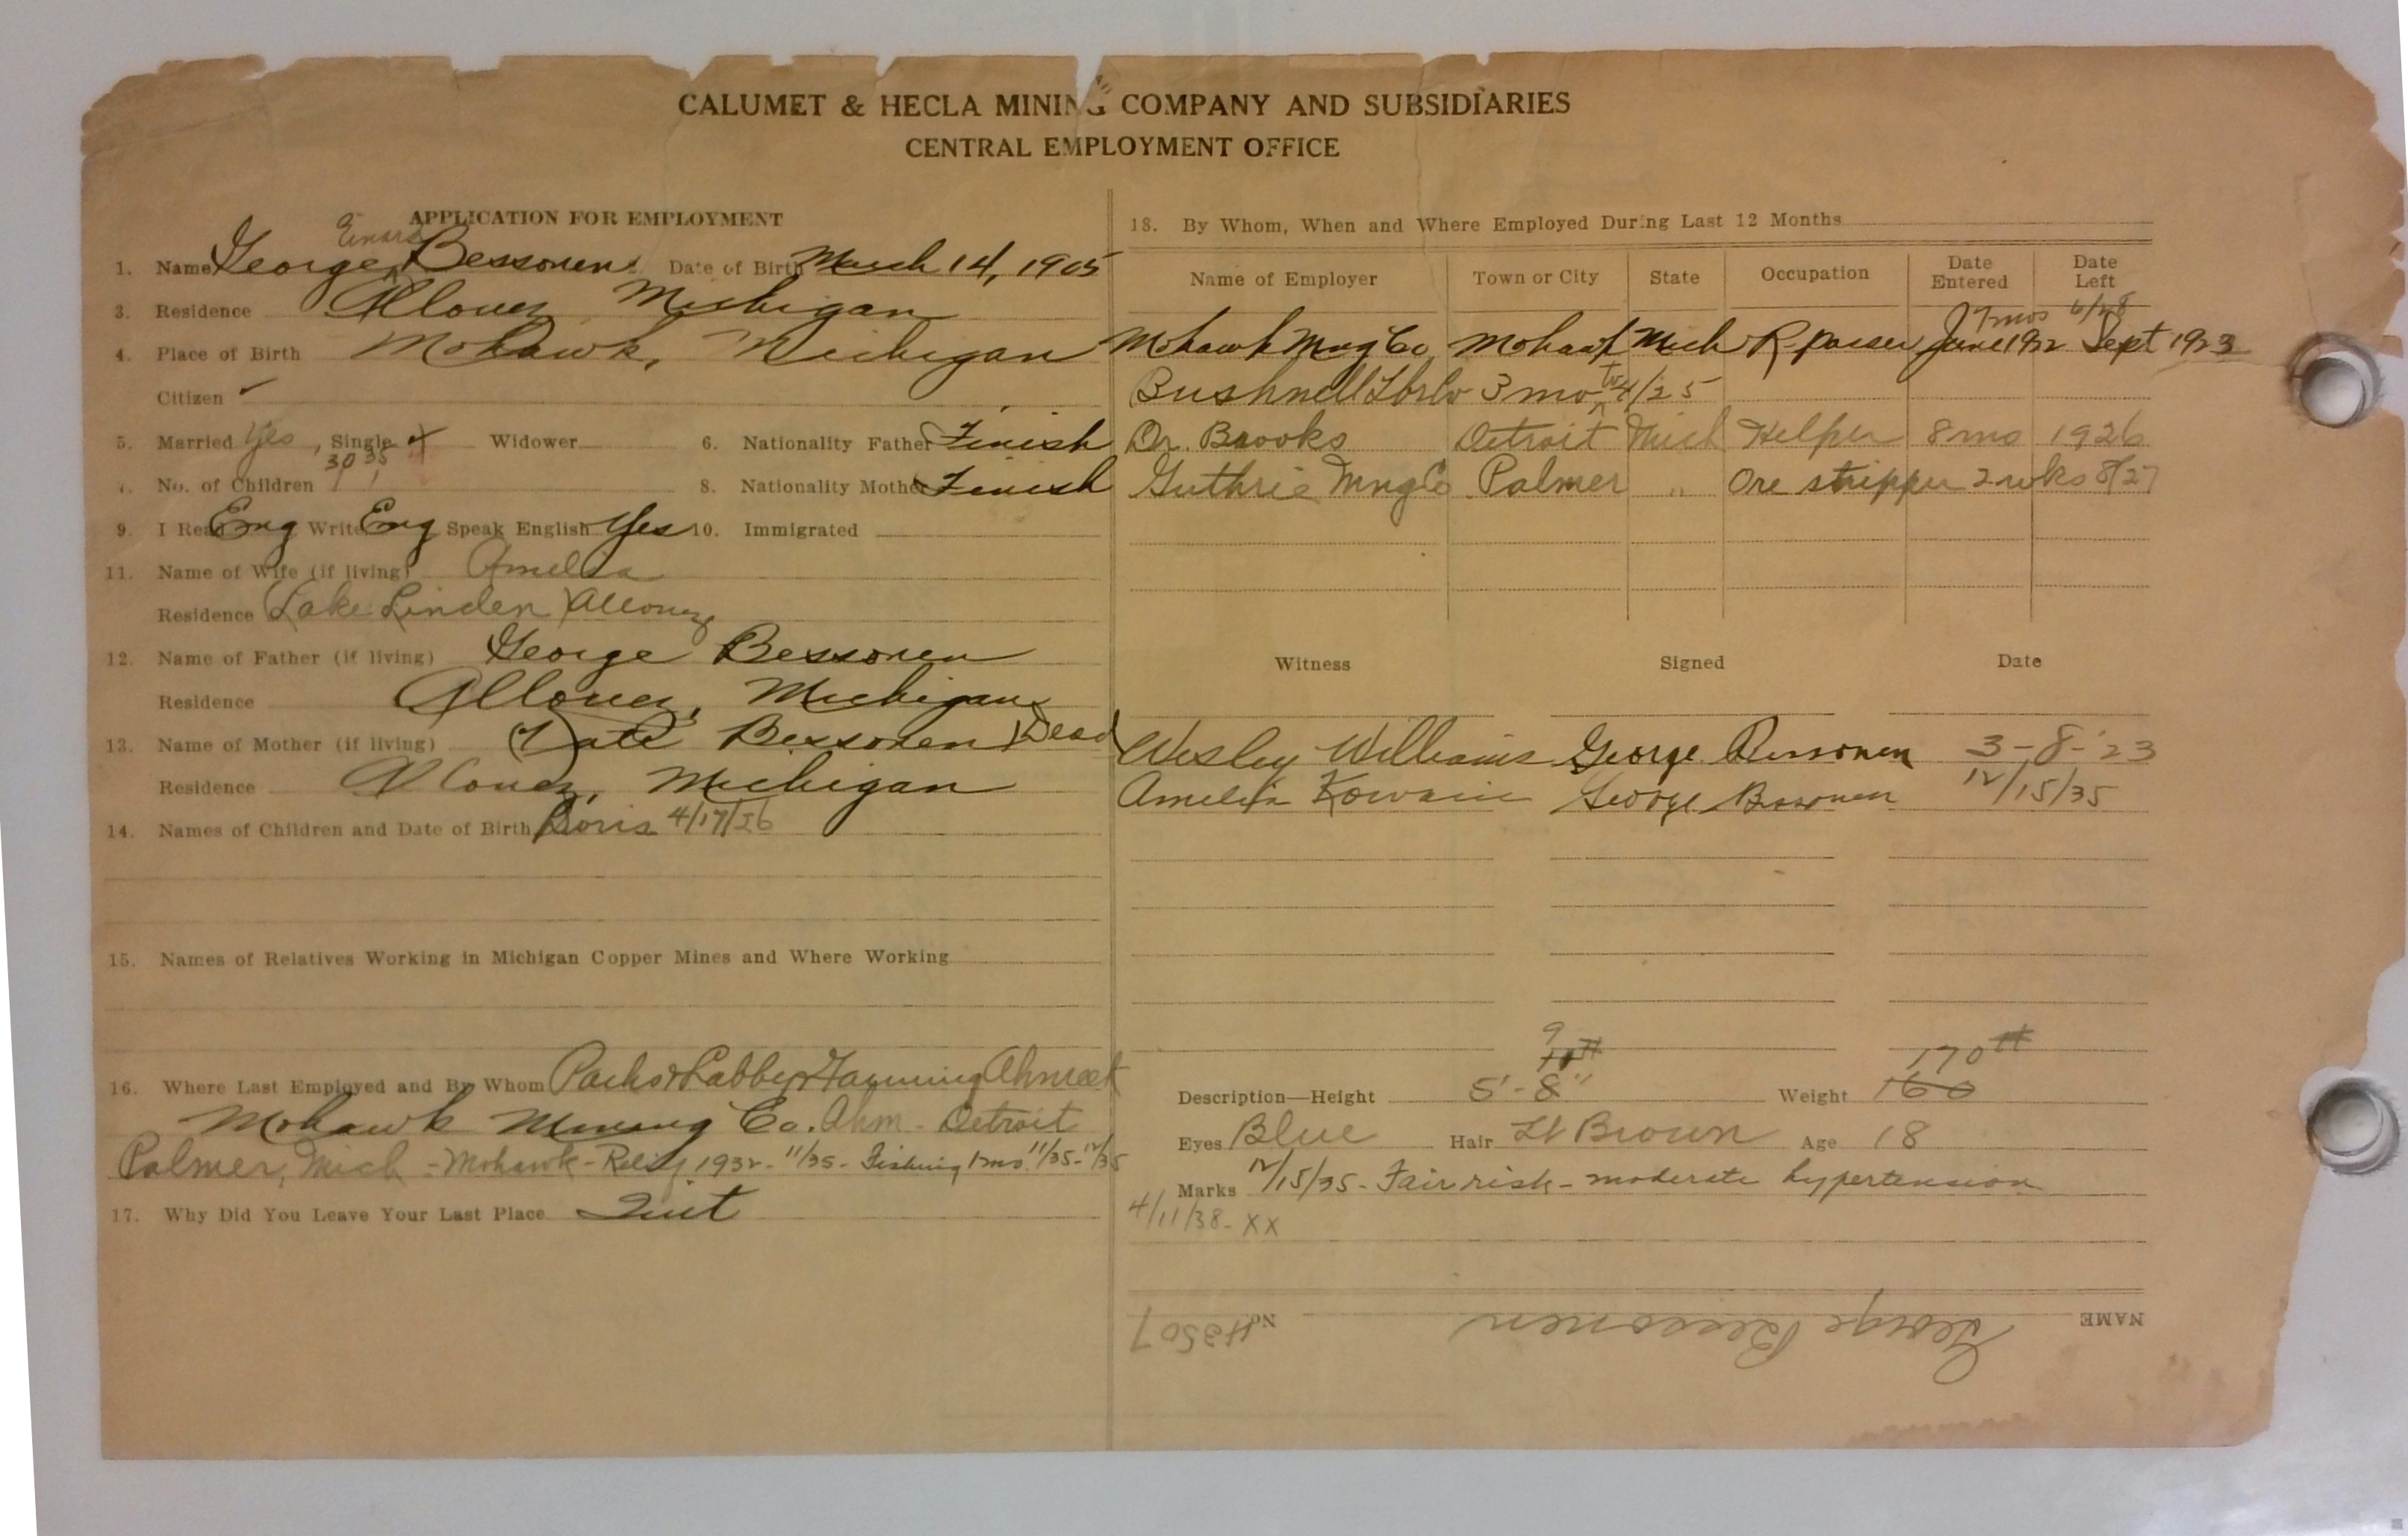 CALUMET & HECLA MINING COMPANY AND SUBSIDIARIES
CENTRAL EMPLOYMENT OFFICE
APPLICATION FOR EMPLOYMENT
1. Name George Bessonen Date of Birth March 14, 1905
3. Residence Allouez, Michigan
4. Place of Birth Mohawk, Michigan
Citizen ✓
5. Married Yes, Single Widower 6. Nationality Father Finish
30 35
7. No. of Children 1 1 8. Nationality Mother Finish
9. I Read Eng Write Eng Speak English Yes 10. Immigrated
11. Name of Wife (if living) Amelia
Residence Lake Linden Allouez
12. Name of Father (if living) George Bessonen
Residence Allouez, Michigan
13. Name of Mother (if living) Bessonen (Dead)
Residence Allouez, Michigan
14. Names of Children and Date of Birth Doris 4/17/26
15. Names of Relatives Working in Michigan Copper Mines and Where Working
16. Where Last Employed and By Whom Ahmeek
Mohawk Mining Co. Ahm - Detroit
Palmer, Mich - Mohawk - Relief 1932 - 11/35 - Fishing 1 mo 11/35 - 12/35
17. Why Did You Leave Your Last Place Quit
18. By Whom, When and Where Employed During Last 12 Months
Name of Employer Town or City State Occupation Date Entered Date Left
7 mos 6/28
Mohawk Mng Co Mohawk Mich June 1922 Sept 1923
Bushnell Lbr Co 3 mo to 4/25
Dr. Brooks Detroit Mich Helper 8 mo 1926
Guthrie Mng Co Palmer " Ore stripper 2 wks 8/27
Witness Signed Date
Wesley Williams George Bessonen 3-8-'23
Amelia George Bessonen 12/15/35
9
170 #
Description—Height 5'-8" Weight 160
Eyes Blue Hair Lt Brown Age 18
Marks 12/15/35 - Fair risk - moderate hypertension
4/11/38 - XX
NAME George Bessonen No. H3507